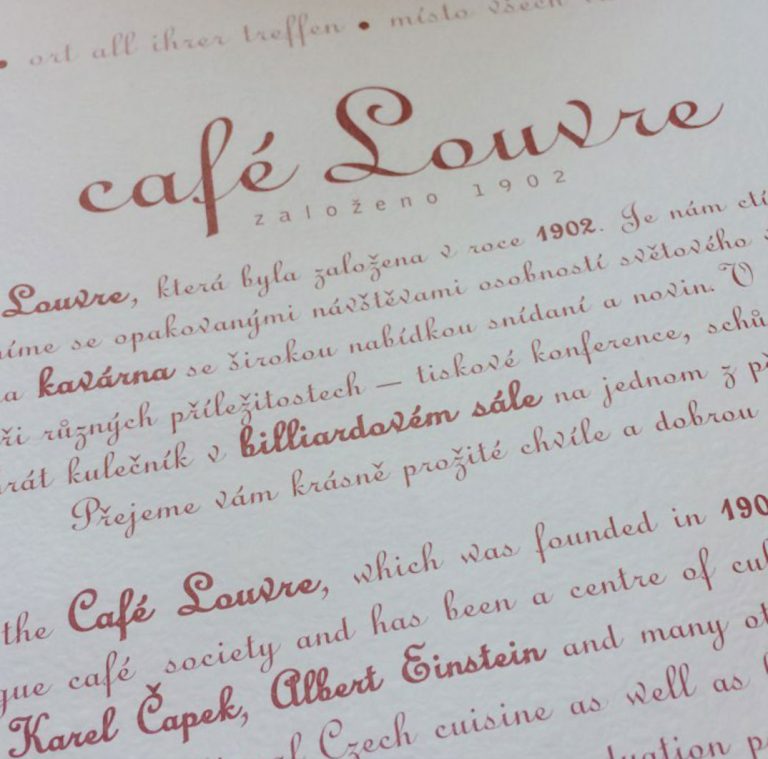 • ort all ihrer treffen • místo všech
café Louvre
založeno 1902
Louvre, která byla založena v roce 1902. Je nám ctí
se opakovanými návštěvami osobností světového
kavárna se širokou nabídkou snídaní a novin. V
různých příležitostech – tiskové konference,
kulečník v billiardovém sále na jednom z
Přejeme vám krásně prožité chvíle a dobrou
the Café Louvre, which was founded in 190
gue café society and has been a centre of cul
Karel Čapek, Albert Einstein and many ot
Czech cuisine as well as